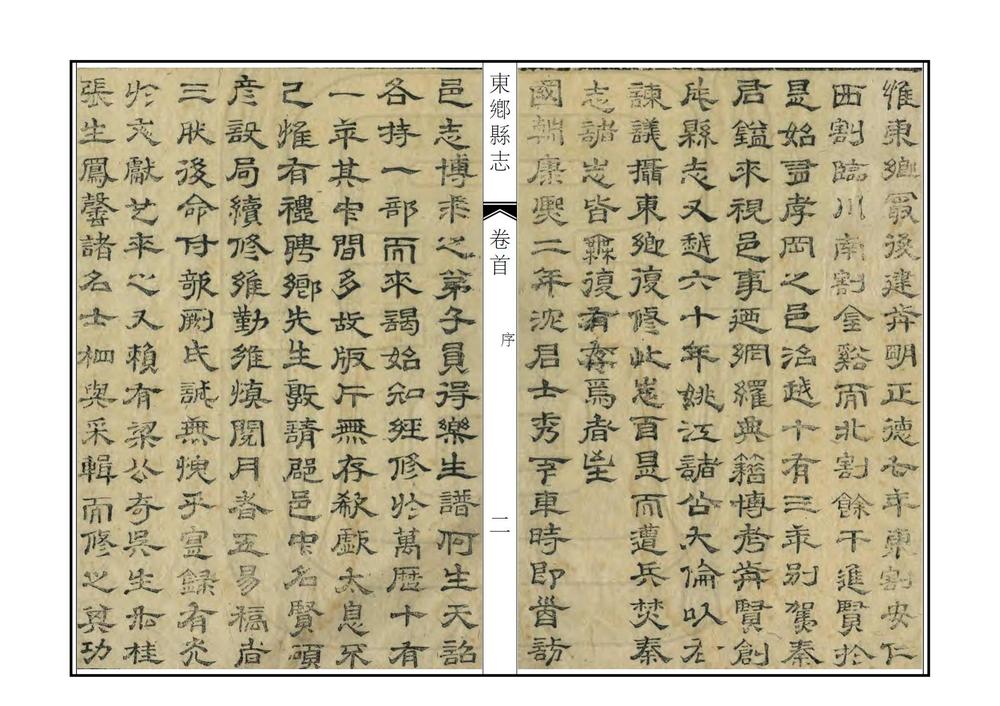 惟東鄉最後建前明正德七年東割安仁
西割臨川南割金谿而北割餘干進賢於
是始置孝岡之邑治越十有三年別駕秦
君鎰來視邑事迺網羅典籍博考前賢創
成縣志又越六十年姚江諸公大倫以左
諫議攝東鄉復修此志百是而遭兵焚秦
志諸志皆無復有存焉者
國朝康熙二年沈君士秀宰東時即訪
東鄉縣志
卷首
序
二
邑志博求之弟子員得樂生譜何生天詔
各持一部而來謁始知經修於萬曆十有
一年其中間多故版片無存欷歔太息不
已惟有禮聘鄉先生敦請郡邑中名賢碩
彥設局續修維勤維慎閱月者五易稿者
三肰後命付剞劂氏誠無愧乎實錄有光
於文獻之又賴有梁公奇吳生丹桂
張生鳳馨諸名士相與采輯而修之其功